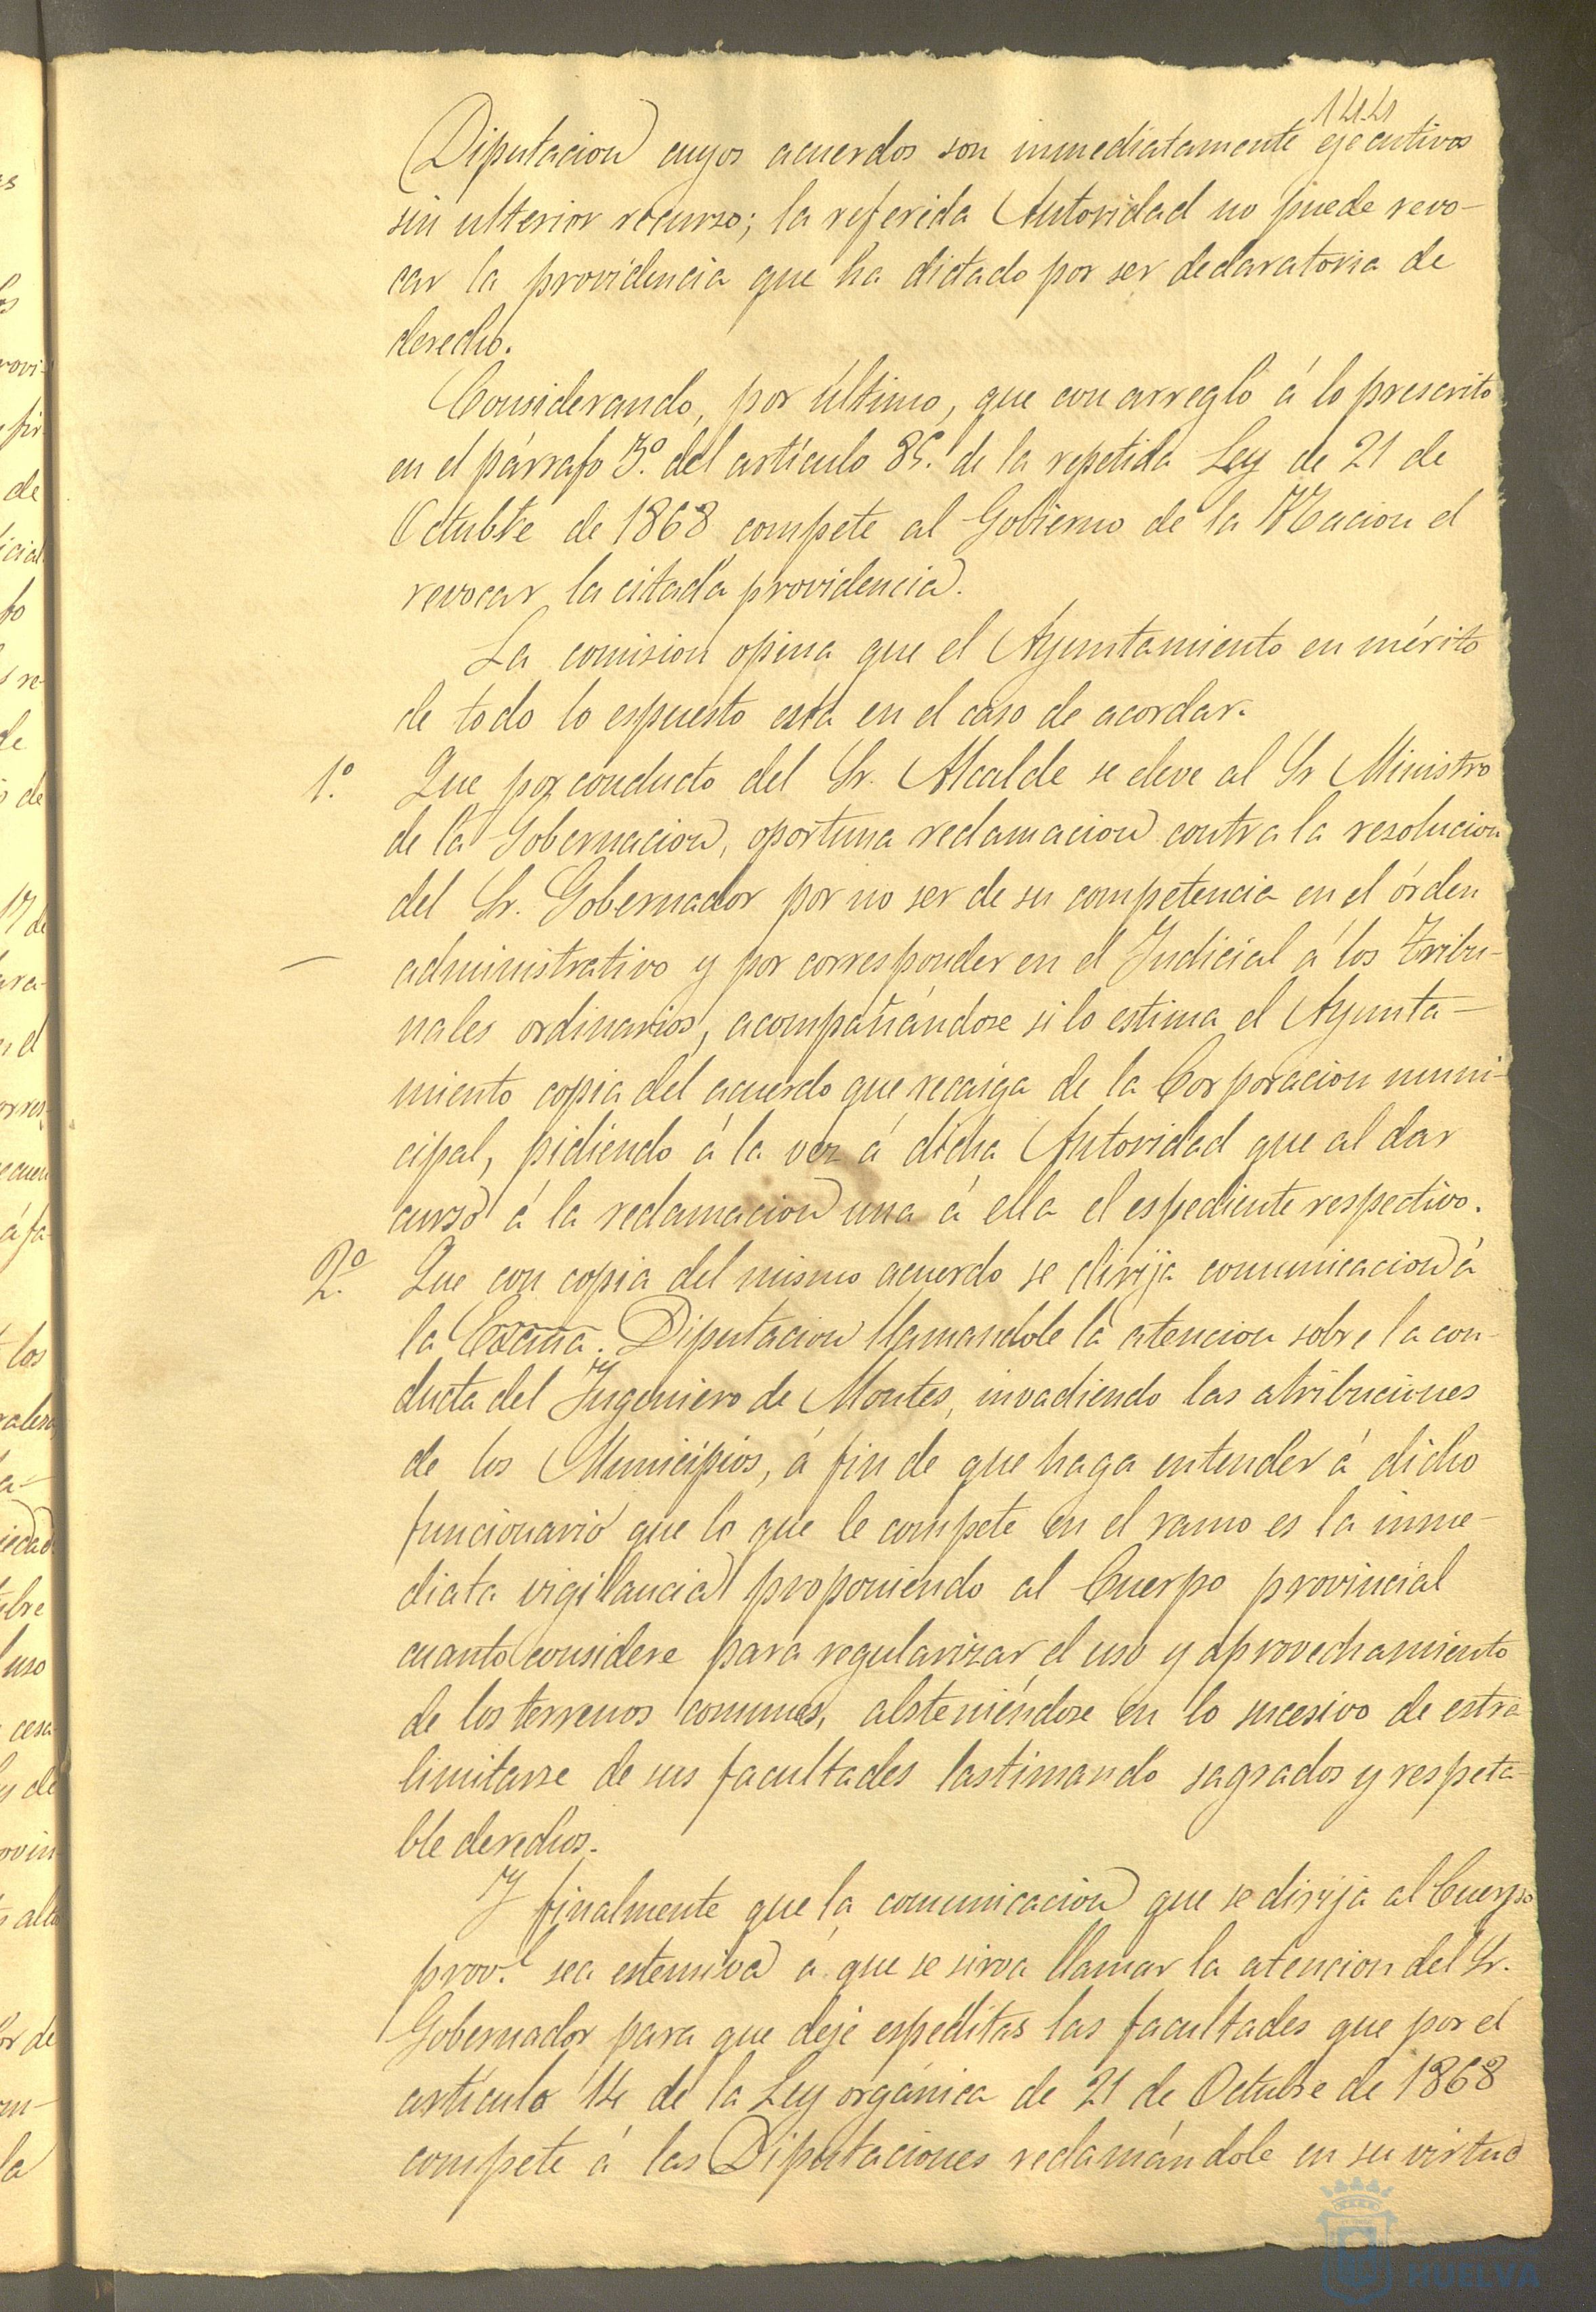 144
Diputacion cuyos acuerdos son inmediatamente ejecutivos
sin ulterior recurso; la referida Autoridad no puede revo-
car la providencia que ha dictado por ser declaratoria de
derecho.
Considerando, por último, que con arreglo á lo prescrito
en el párrafo 3º. del artículo 85. de la repetida Ley de 21 de
Octubre de 1868 compete al Gobierno de la Nacion el
revocar la citada providencia.
La comision opina que el Ayuntamiento en mérito
de todo lo espuesto está en el caso de acordar.
1º. Que por conducto del Sr. Alcalde se eleve al Sr Ministro
de la Gobernacion, oportuna reclamacion contra la resolucion
del Sr. Gobernador por no ser de su competencia en el órden
administrativo y por corresponder en el Judicial á los Tribu-
nales ordinarios, acompañándose si lo estima el Ayunta-
miento copia del acuerdo que recaiga de la Corporacion muni-
cipal, pidiendo á la vez á dicha Autoridad que al dar
curso á la reclamacion una á ella el espediente respectivo.
2º. Que con copia del mismo acuerdo se dirija comunicacion á
la Excma. Diputacion llamandole la atencion sobre la con-
ducta del Ingeniero de Montes, invadiendo las atribuciones
de los Municipios, á fin de que haga entender á dicho
funcionario que lo que le compete en el ramo es la inme-
diata vigilancia proponiendo al Cuerpo provincial
cuanto considere para regularizar el uso y aprovechamiento
de los terrenos comunes, absteniéndose en lo sucesivo de estra
limitarse de sus facultades lastimando sagrados y respeta-
ble derechos.
Y finalmente que la comunicacion que se dirija al Cuerpo
prov.l sea estensiva á que se sirva llamar la atencion del Sr.
Gobernador para que deje espeditas las facultades que por el
artículo 14 de la Ley orgánica de 21 de Octubre de 1868
compete á las Diputaciones reclamándole en su virtud
HUELVA